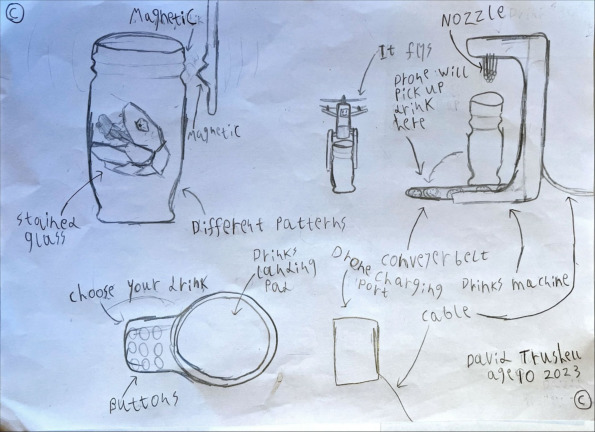 ©
Magnetic
Nozzle
It flys
Drone will
pick up
drink
here
Magnetic
Stained
glass
Different Patterns
Drinks
landing
pad
Drone
charging
port
conveyer belt
Drinks machine
choose your drink
cable
Buttons
age 10 2023
©